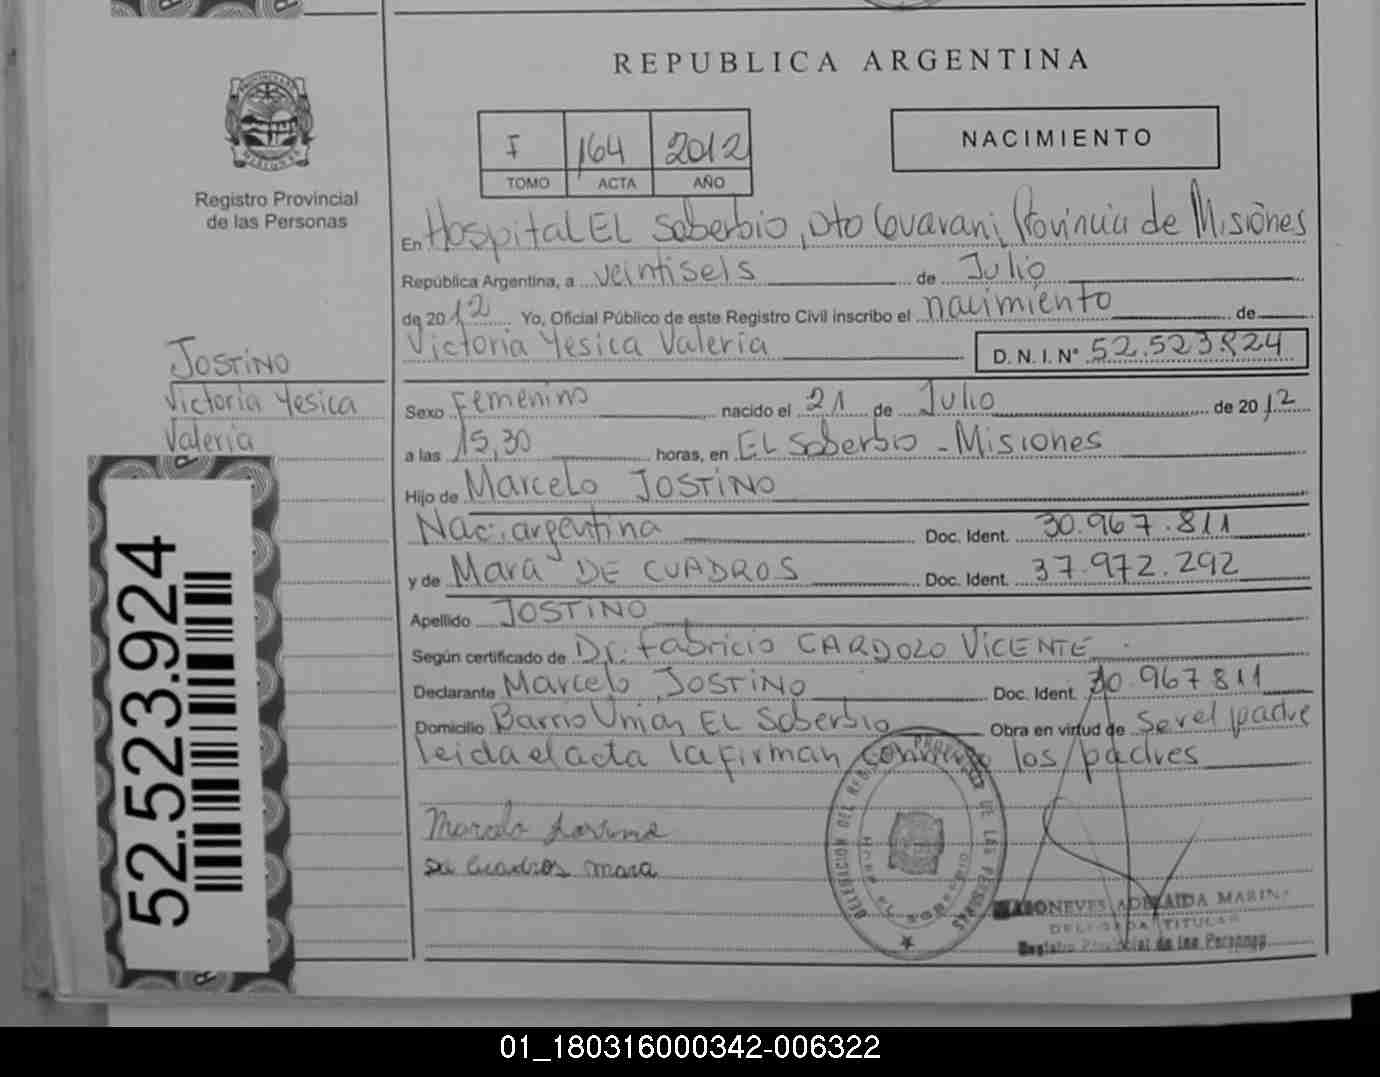 REPUBLICA ARGENTINA
I 164 2012
TOMO ACTA AÑO
NACIMIENTO
Registro Provincial
de las Personas
En Hospital EL Soberbio, Dto Guarani, Provincia de Misiones
República Argentina, a veintiseis de Julio
de 2012 Yo, Oficial Público de este Registro Civil inscribo el nacimiento de
Victoria Yesica Valeria D. N. I. N° 52.523.924
JOSTINO
Victoria Yesica
Valeria
Sexo Femenino nacido el 21 de Julio de 2012
a las 15,30 horas, en EL Soberbio - Misiones
Hijo de Marcelo JOSTINO
Nac. argentina Doc. Ident. 30.967.811
y de Mara DE CUADROS Doc. Ident. 37.972.292
Apellido JOSTINO
Según certificado de Dr. Fabricio CARDOZO VICENTE
Declarante Marcelo JOSTINO Doc. Ident. 30.967811
Domicilio Barrio Unión EL Soberbio Obra en virtud de Ser el padre
leida el acta la firman conmigo los padres
de Cuadros mara
52.523.924
DELEGACION DEL REGISTRO PROVINCIAL DE LAS PERSONAS
ADELAIDA MARINA
DELEGADA TITULAR
Registro Provincial de las Personas
01_180316000342-006322